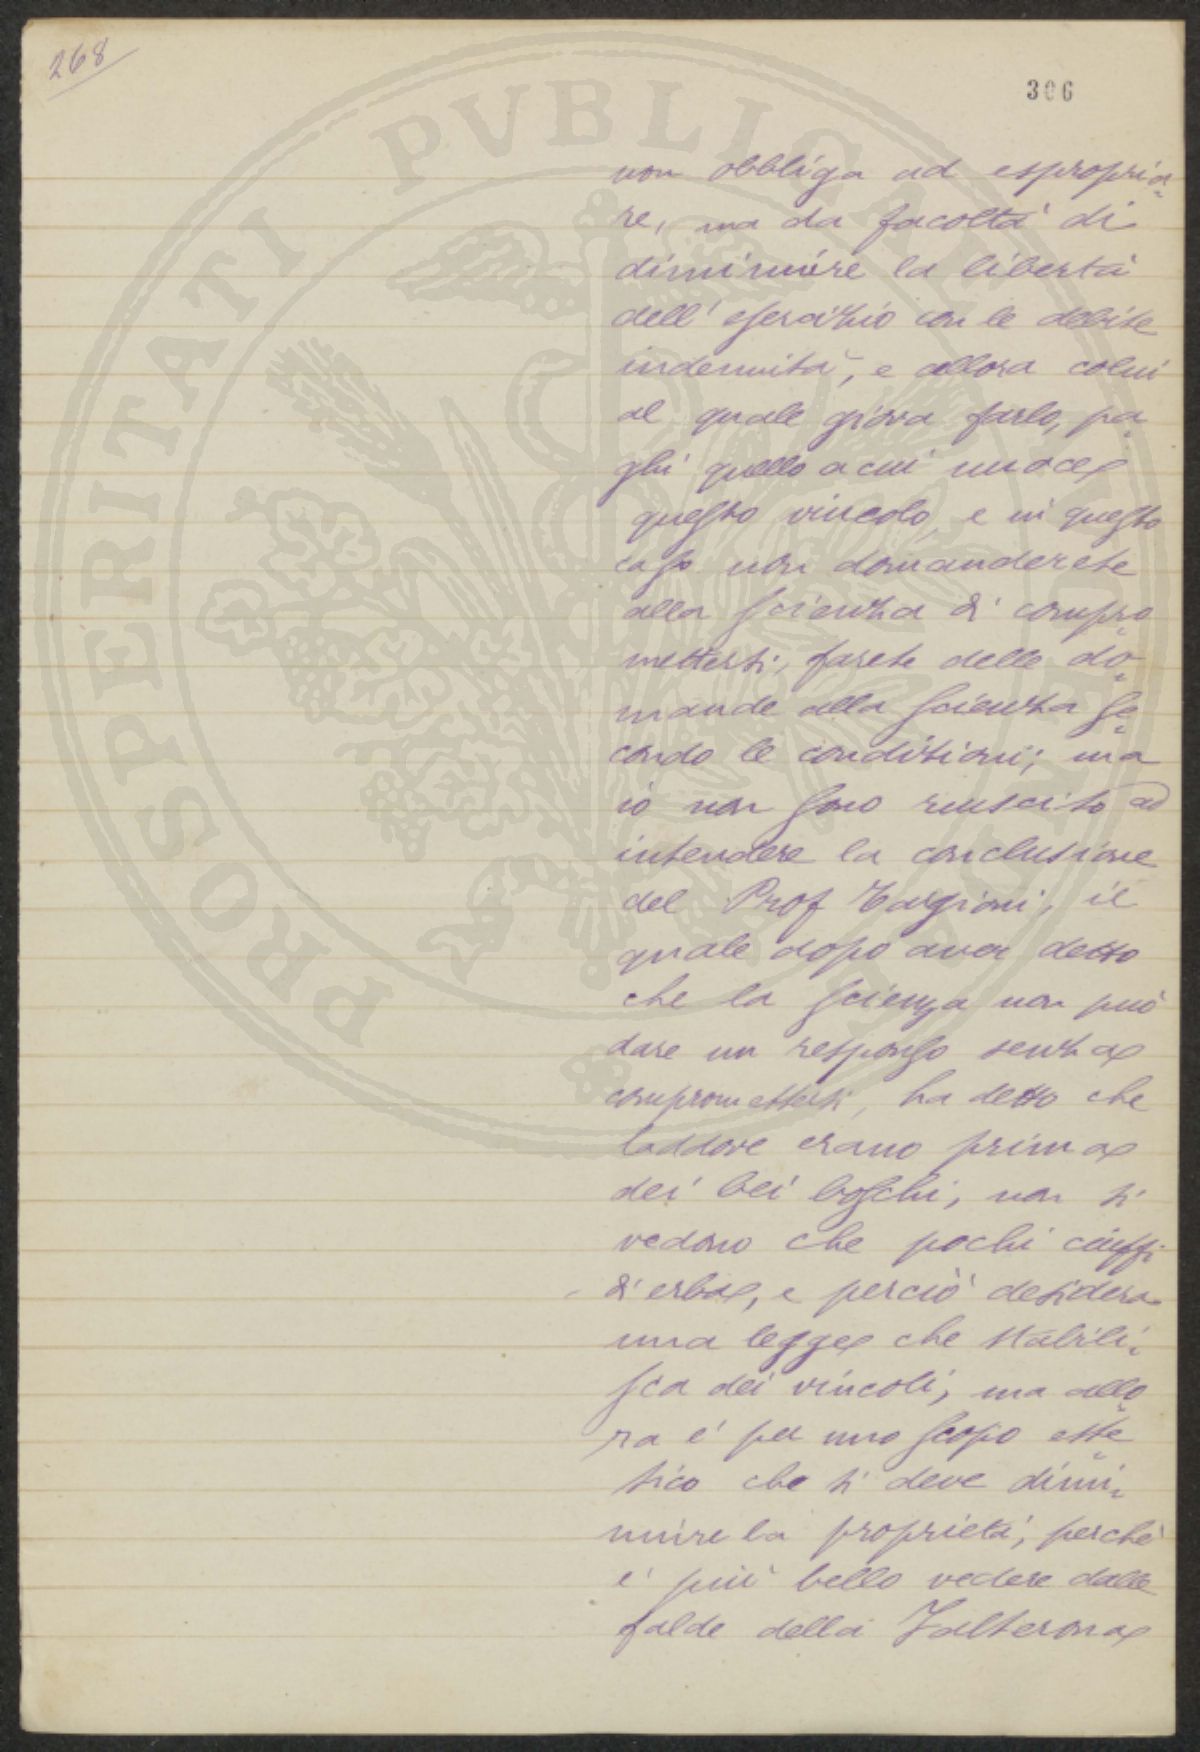 268
306
PROSPERITATI PVBLICAE AVGENDAE
non obbliga ad espropria=
re, ma da facoltà di
diminuire la libertà
dell' esercizio con le debite
indennità, e allora colui
al quale giova farlo, pa=
ghi quello a cui nuoce
questo vincolo, e in questo
caso non domanderete
alla scienza di compro=
mettersi, farete delle do=
mande alla scienza se=
condo le condizioni; ma
io non sono riuscito ad
intendere la conclusione
del Prof Targioni, il
quale dopo aver detto
che la scienza non può
dare un responso senza
compromettersi, ha detto che
laddove erano prima
dei bei boschi, non si
vedono che pochi ciuffi
di erba, e perciò desidera
una legge che stabili=
sca dei vincoli, ma allo=
ra é per uno scopo este=
tico che si deve dimi=
nuire la proprietà, perché
é più bello vedere dalle
falde della Falterona